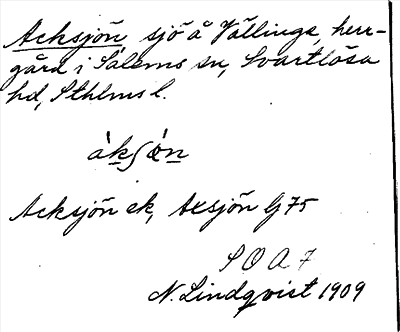 Acksjön sjö å Vällinge, herr-
gård i Salems sn, Svartlösa
hd, Sthlms l.
àkʃǿn
Acksjön ek, Axsjön G 75
S O A 7
N. Lindqvist 1909